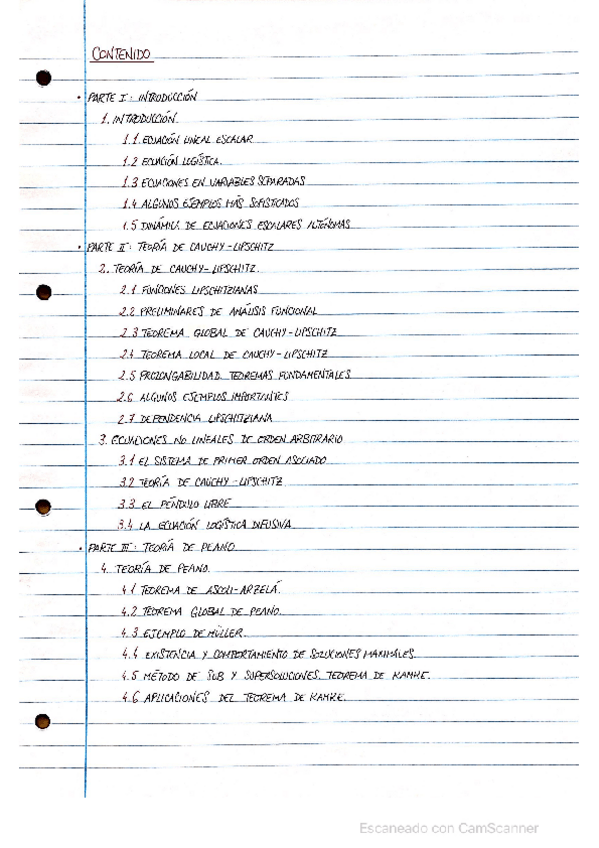 CONTENIDO
• PARTE I: INTRODUCCIÓN
1. INTRODUCCIÓN.
1.1 ECUACIÓN LINEAL ESCALAR
1.2 ECUACIÓN LOGÍSTICA.
1.3 ECUACIONES EN VARIABLES SEPARADAS
1.4 ALGUNOS EJEMPLOS MÁS SOFISTICADOS
1.5 DINÁMICA DE ECUACIONES ESCALARES AUTÓNOMAS
• PARTE II: TEORÍA DE CAUCHY-LIPSCHITZ
2. TEORÍA DE CAUCHY-LIPSCHITZ.
2.1 FUNCIONES LIPSCHITZIANAS
2.2 PRELIMINARES DE ANÁLISIS FUNCIONAL
2.3 TEOREMA GLOBAL DE CAUCHY-LIPSCHITZ
2.4 TEOREMA LOCAL DE CAUCHY-LIPSCHITZ
2.5 PROLONGABILIDAD. TEOREMAS FUNDAMENTALES
2.6 ALGUNOS EJEMPLOS IMPORTANTES
2.7 DEPENDENCIA LIPSCHITZIANA
3. ECUACIONES NO LINEALES DE ORDEN ARBITRARIO
3.1 EL SISTEMA DE PRIMER ORDEN ASOCIADO
3.2 TEORÍA DE CAUCHY-LIPSCHITZ
3.3 EL PÉNDULO LIBRE
3.4 LA ECUACIÓN LOGÍSTICA DIFUSIVA
• PARTE III: TEORÍA DE PEANO
4. TEORÍA DE PEANO.
4.1 TEOREMA DE ASCOLI-ARZELÁ.
4.2 TEOREMA GLOBAL DE PEANO.
4.3 EJEMPLO DE MÜLLER.
4.4 EXISTENCIA Y COMPORTAMIENTO DE SOLUCIONES MAXIMALES.
4.5 MÉTODO DE SUB Y SUPERSOLUCIONES. TEOREMA DE KAMKE.
4.6 APLICACIONES DEL TEOREMA DE KAMKE.
Escaneado con CamScanner